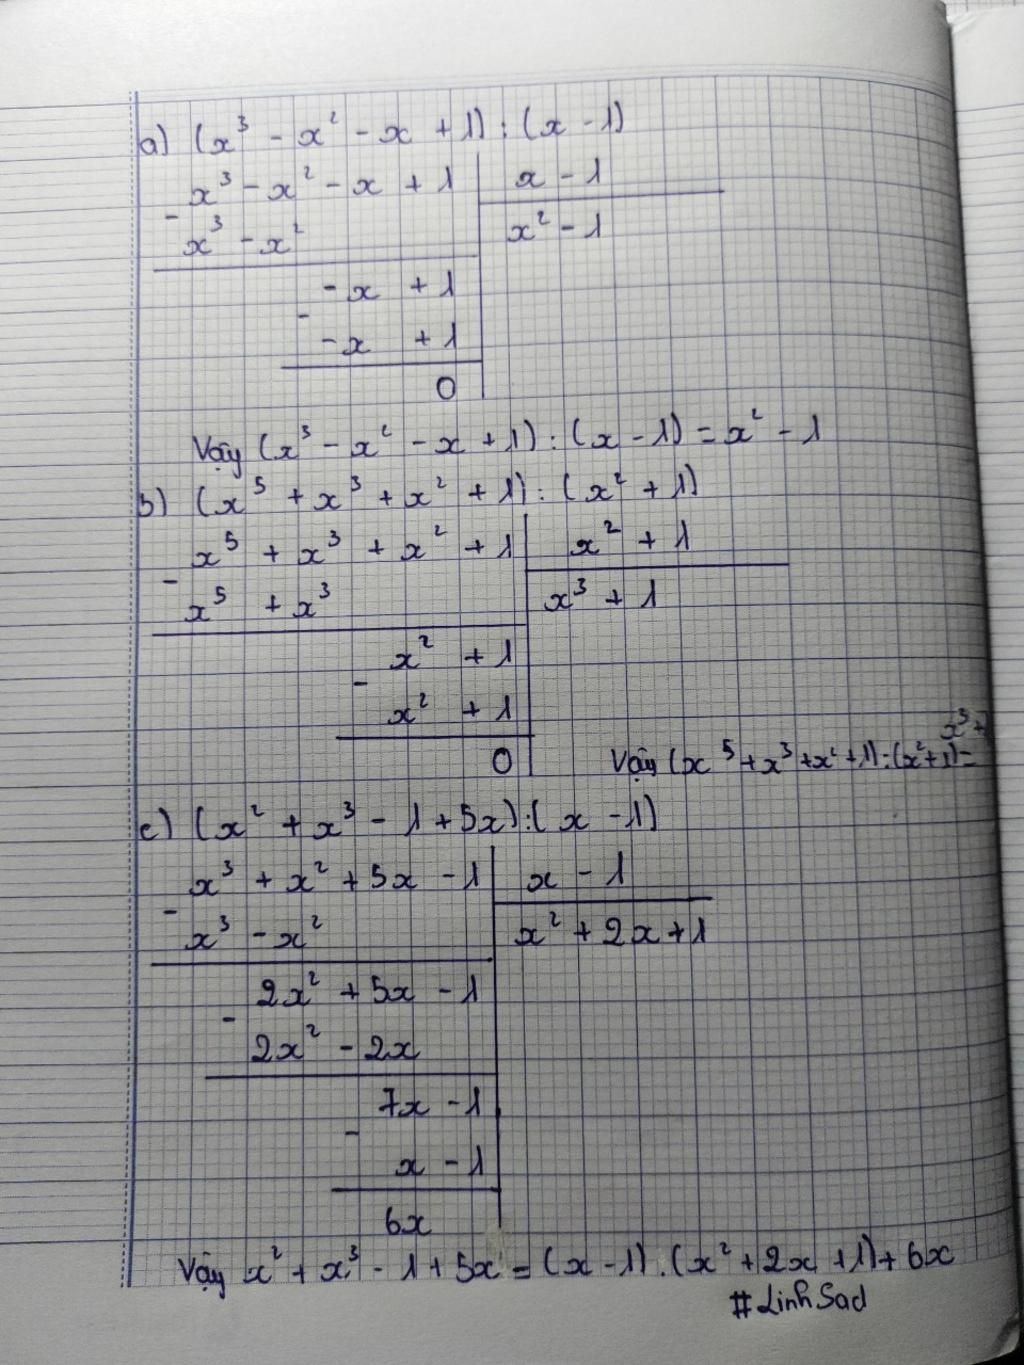 a) (x³ - x² - x + 1) : (x - 1)
x³ - x² - x + 1 | x - 1
- x³ - x² | x² - 1
- x + 1
- - x + 1
0
Vậy (x³ - x² - x + 1) : (x - 1) = x² - 1
b) (x⁵ + x³ + x² + 1) : (x² + 1)
x⁵ + x³ + x² + 1 | x² + 1
- x⁵ + x³ | x³ + 1
x² + 1
- x² + 1
0
Vậy (x⁵ + x³ + x² + 1) : (x² + 1) = x³ +
c) (x² + x³ - 1 + 5x) : (x - 1)
x³ + x² + 5x - 1 | x - 1
- x³ - x² | x² + 2x + 1
2x² + 5x - 1
- 2x² - 2x
7x - 1
- x - 1
6x
Vậy x² + x³ - 1 + 5x = (x - 1) . (x² + 2x + 1) + 6x
#LinhSad